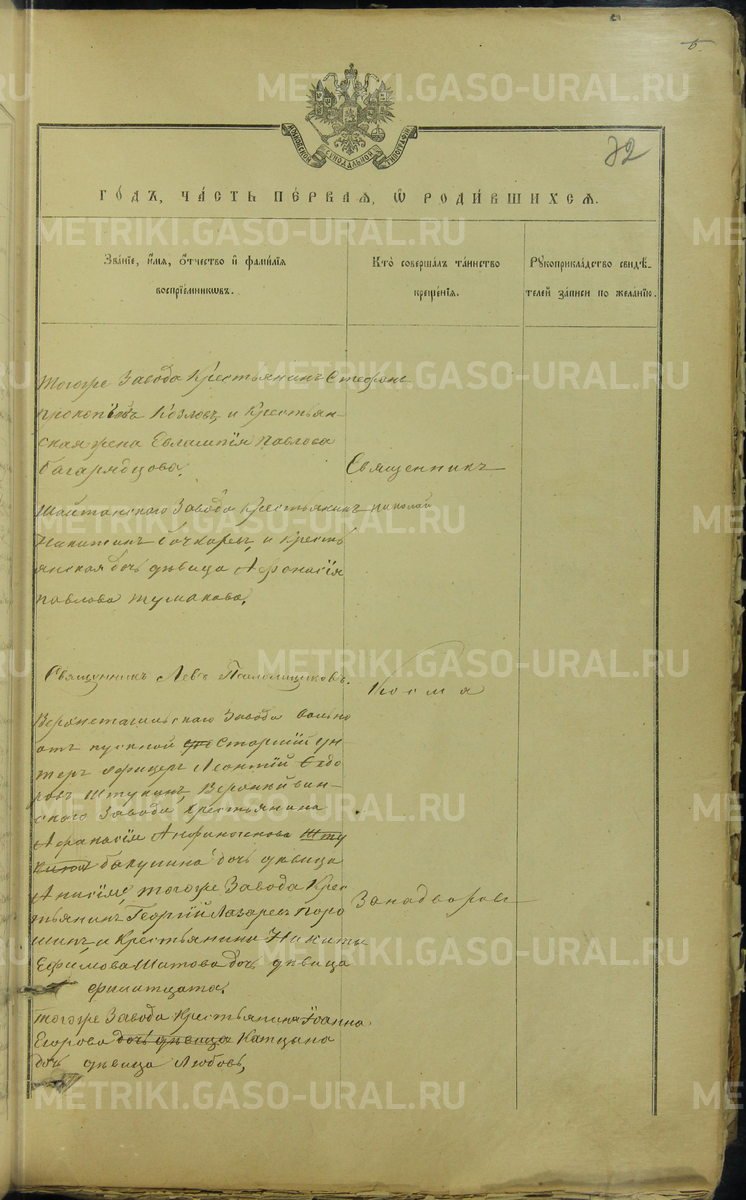 METRIKI.GASO-URAL.RU
5.
МОСКОВСКОЙ СѴНОДАЛЬНОЙ ТИПОГРАФІИ
72
ГО́ДЪ, ЧА́СТЬ ПЕ́РВАЯ, Ѡ҆ РОДИ́ВШИХСѦ.
METRIKI.GASO-URAL.RU
Зва́нїе, и҆́мя, ѻ҆́тчество и҆ фами́лїя воспрїе́мникѡвъ.
Кто̀ соверша́лъ та́инство креще́нїя.
Рꙋкоприкла́дство свидѣ́телей за́писи по жела́нїю.
Тогоже Завода Крестьянинъ Стефанъ
Прокопьевъ Козловъ и Крестьян-
ская жена Евлампія Павлова
Багарядцова.
Священникъ
Шайтанского Завода Крестьянинъ Николай
Никитинъ Бочкаревъ и Кресть
янская дочь дѣвица Афонасія
Павлова Тумакова.
Священникъ Левъ
Косма
Верхнетагильскаго Завода вольно
отпускной Старшій Ун
теръ офицеръ Леонтій Его
ровъ Штукинъ, Верхнейвин-
скаго Завода Крестьянина
Афанасія Анфиногенова Шту
кина бакунина дочь дѣвица
Анисія, тогоже Завода Крес
тьянинъ Георгій Лазаревъ Поро
шинъ и Крестьянина Никиты
Ефимова Шитова дочь дѣвица
Филатцата.
Занадворовъ
тогоже Завода Крестьянина Іоанна
Егорова дочь дѣвица Катцына
дочь дѣвица Любовь,
METRIKI.GASO-URAL.RU